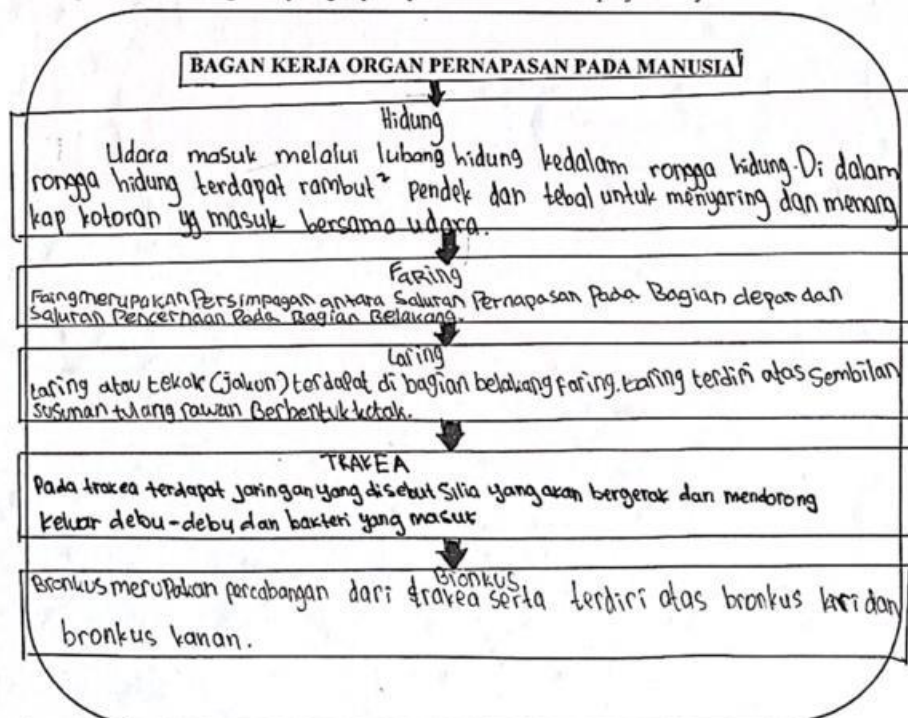 BAGAN KERJA ORGAN PERNAPASAN PADA MANUSIA
Hidung
Udara masuk melalui lubang hidung kedalam rongga hidung. Di dalam
rongga hidung terdapat rambut² pendek dan tebal untuk menyaring dan menang
kap kotoran yg masuk bersama udara.
Faring
Faing merupakan Persimpagan antara Saluran Pernapasan Pada Bagian depan dan
Saluran Pencernaan Pada Bagian Belakang.
Laring
Laring atau tekak (jakun) terdapat di bagian belakang faring. Laring terdiri atas Sembilan
susunan tulang rawan Berbentuk kotak.
TRAKEA
Pada trakea terdapat jaringan yang disebut Silia yang akan bergerak dan mendorong
keluar debu-debu dan bakteri yang masuk
Bronkus
Bronkus merupakan percabangan dari trakea serta terdiri atas bronkus kiri dan
bronkus kanan.